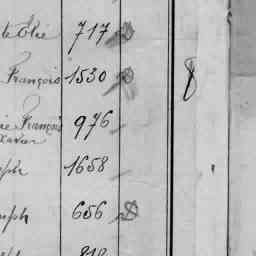 te Elie 717
François 1530
ie François 976
Xavier
ph 1658
seph 656